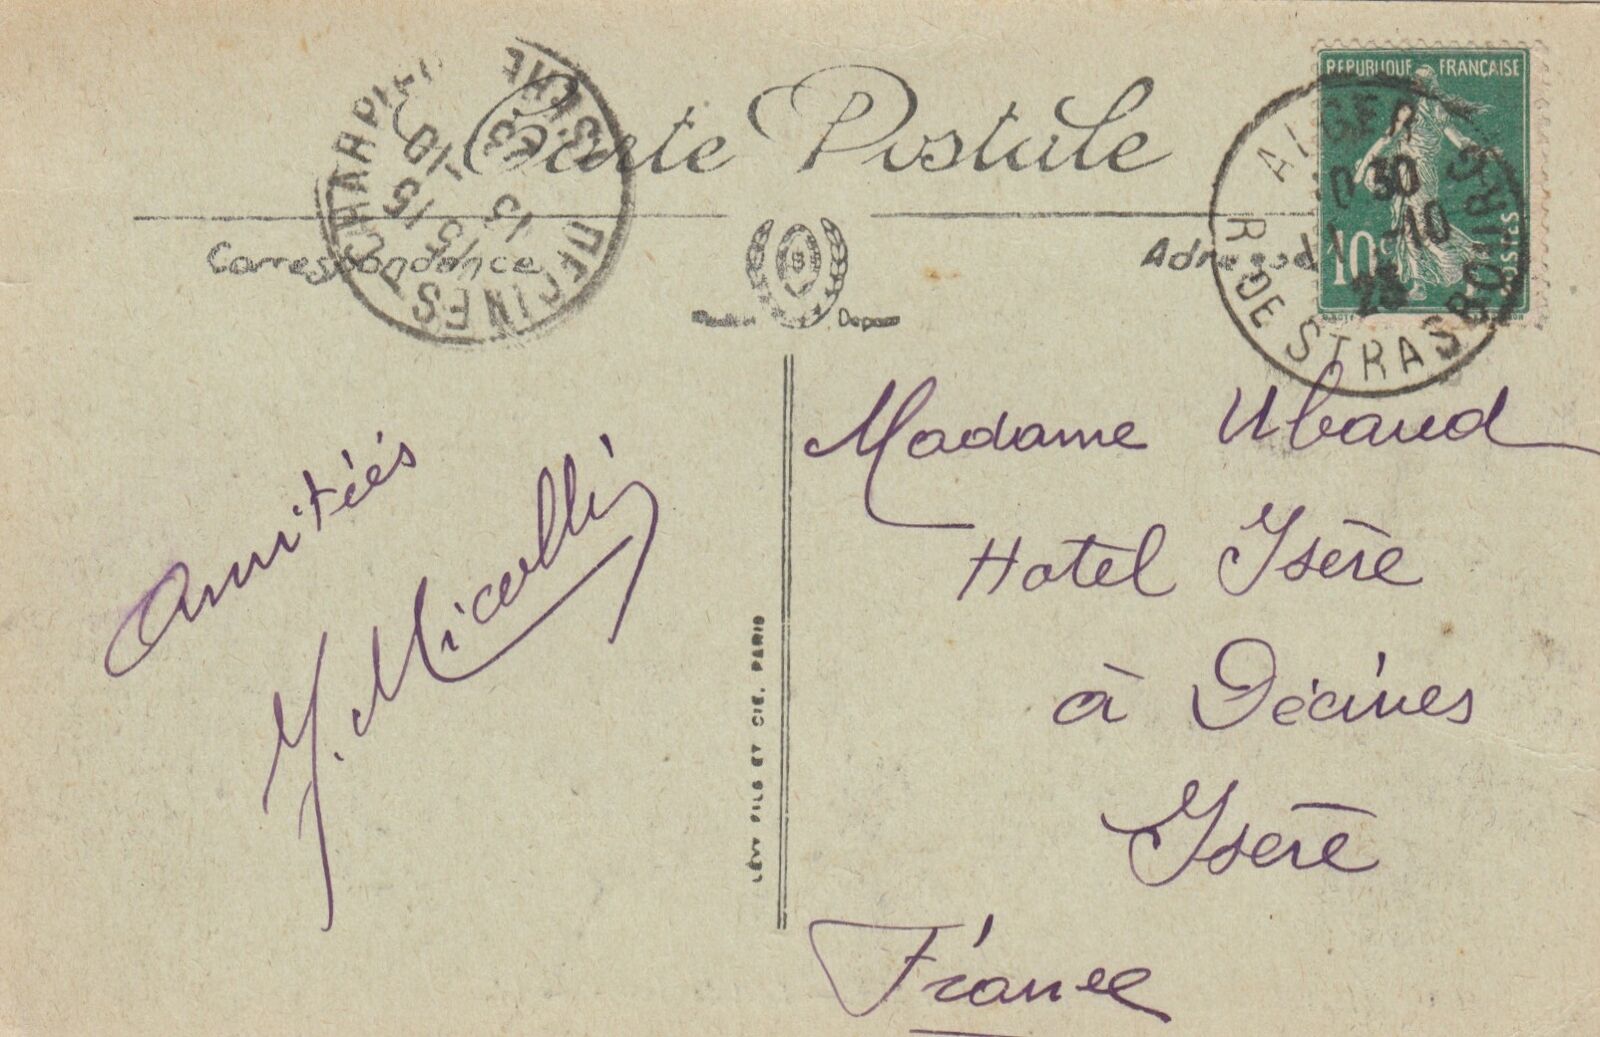 Carte Postale
Correspondance
Adresse
REPUBLIQUE FRANÇAISE
10c
POSTES
ALGER
30
11 -10
23
R. DE STRASBOURG
DECINES-CHARPIEU
ISERE
15 15
13 -10
23
Amitiés
J. Micalli
LÉVY FILS ET CIE, PARIS
Madame Ubaud
Hotel Isère
à Décines
Isère
France